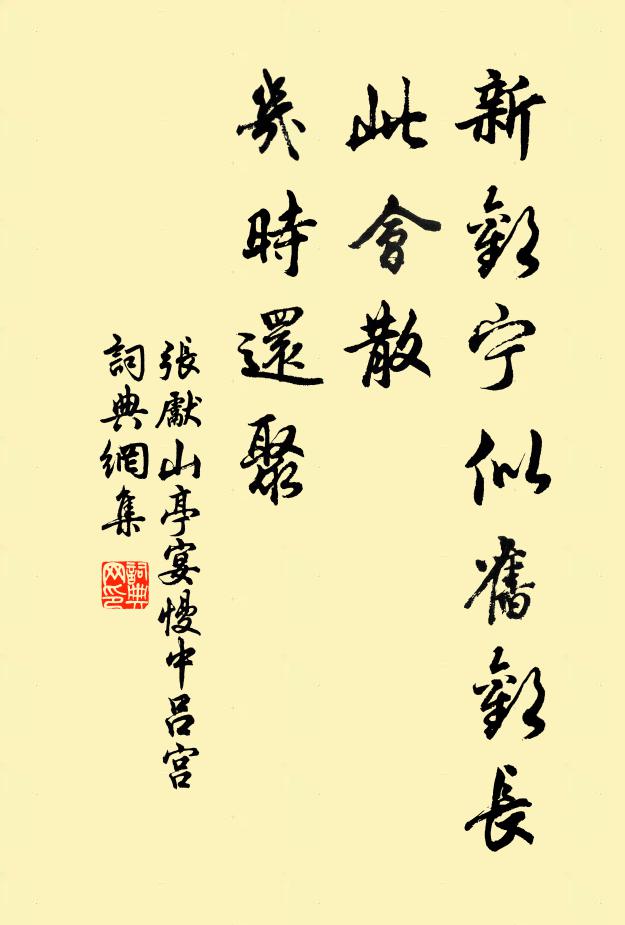 新歡宁似舊歡長
此會散
幾時還聚
張獻山亭宴慢中呂宮
詞典網集
詞典网印